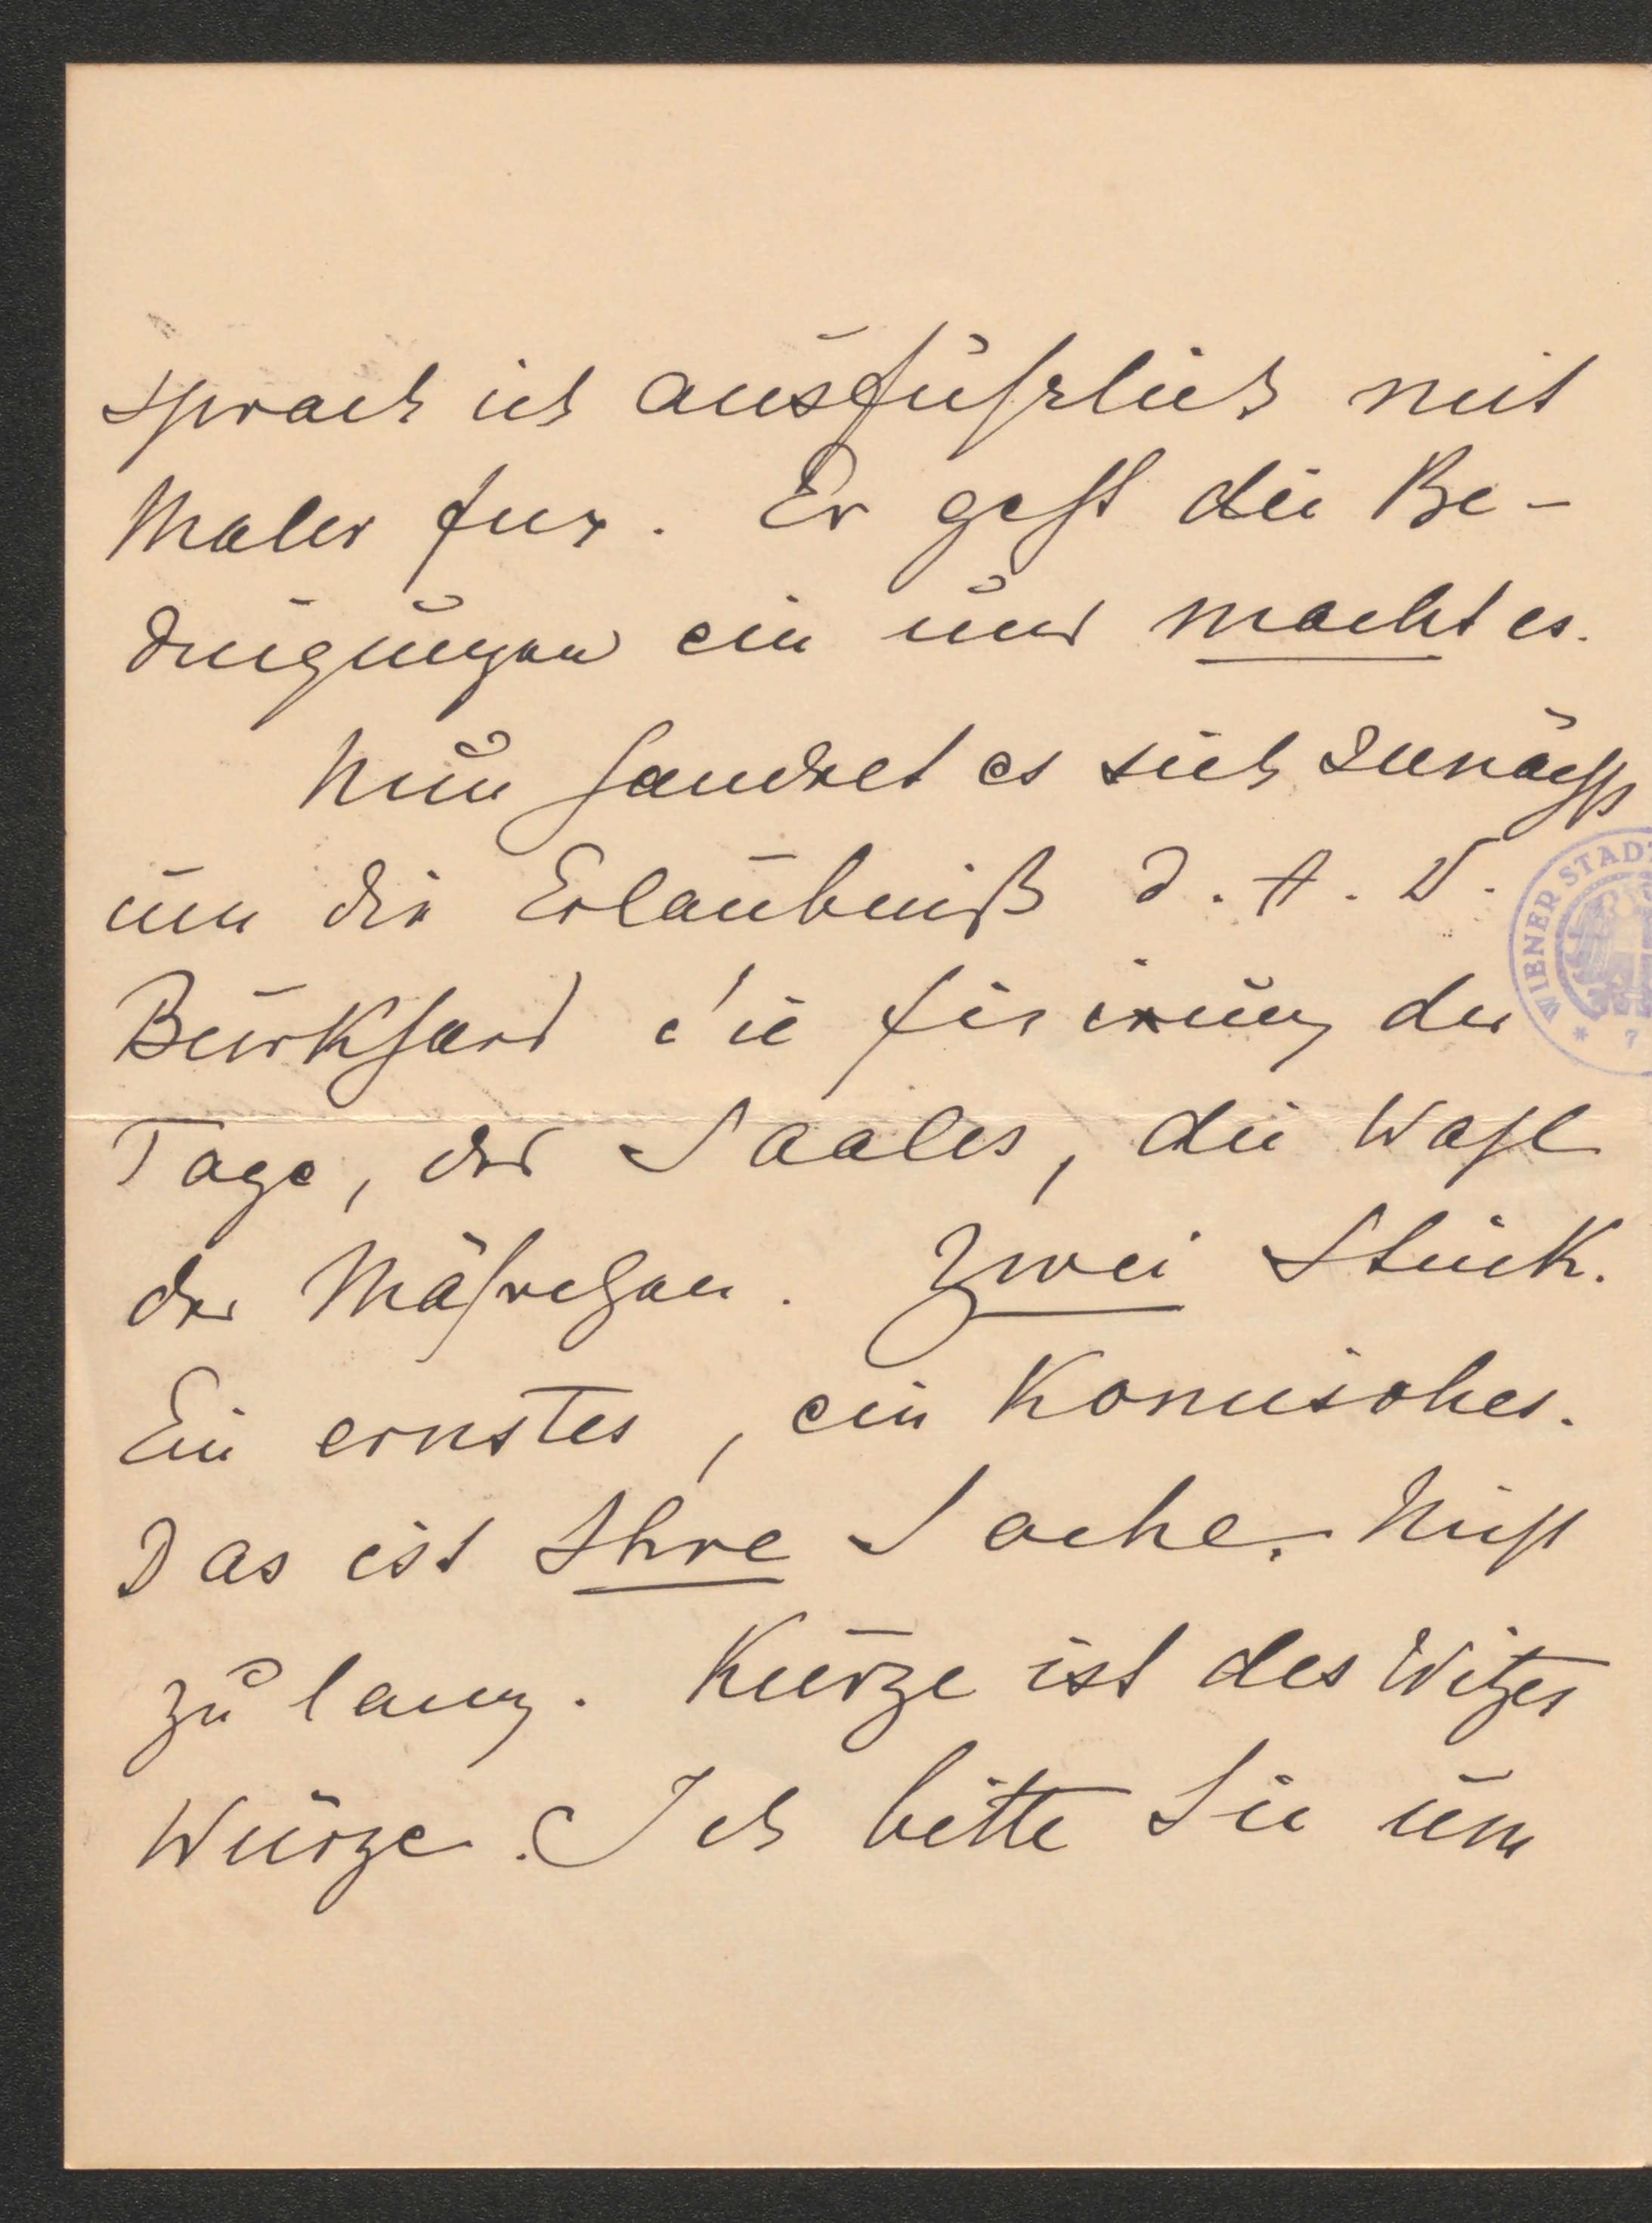 sprach ich ausführlich mit
Maler Fux. Er geht die Be-
dingungen ein und macht es.
Nun handelt es sich zunächst
um die Erlaubniß d. A. D.
WIENER STADT
Burkhard die Fixirung der
* 7
Tage, des Saales, die Wahl
der Mährchen. Zwei Stück.
Ein ernstes, ein komisches.
Das ist Ihre Sache. Nicht
zu lang. Kürze ist des Witzes
Würze. Ich bitte Sie um